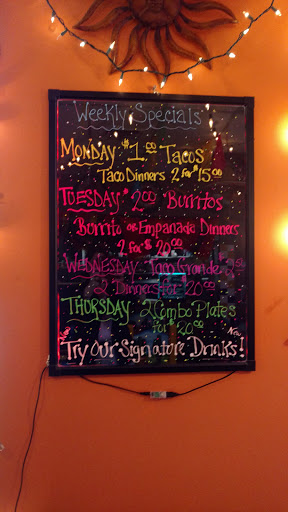 Weekly Specials
Monday $1.00 Tacos
Taco Dinners 2 for $15.00
Tuesday $2.00 Burritos
Burrito or Empanada Dinners
2 for $20.00
Wednesday Taco Grande 2.50
2 Dinners for 20.00
Thursday 2 Combo Plates
for 20.00
New New
Try Our Signature Drinks!